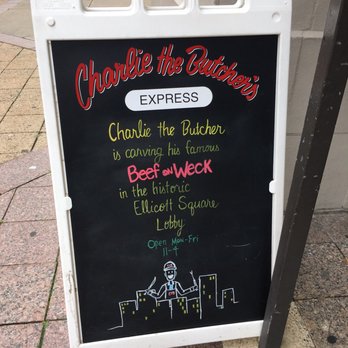 Charlie the Butcher's
EXPRESS
Charlie the Butcher
is carving his famous
Beef on Weck
in the historic
Ellicott Square
Lobby
Open Mon-Fri
11-4